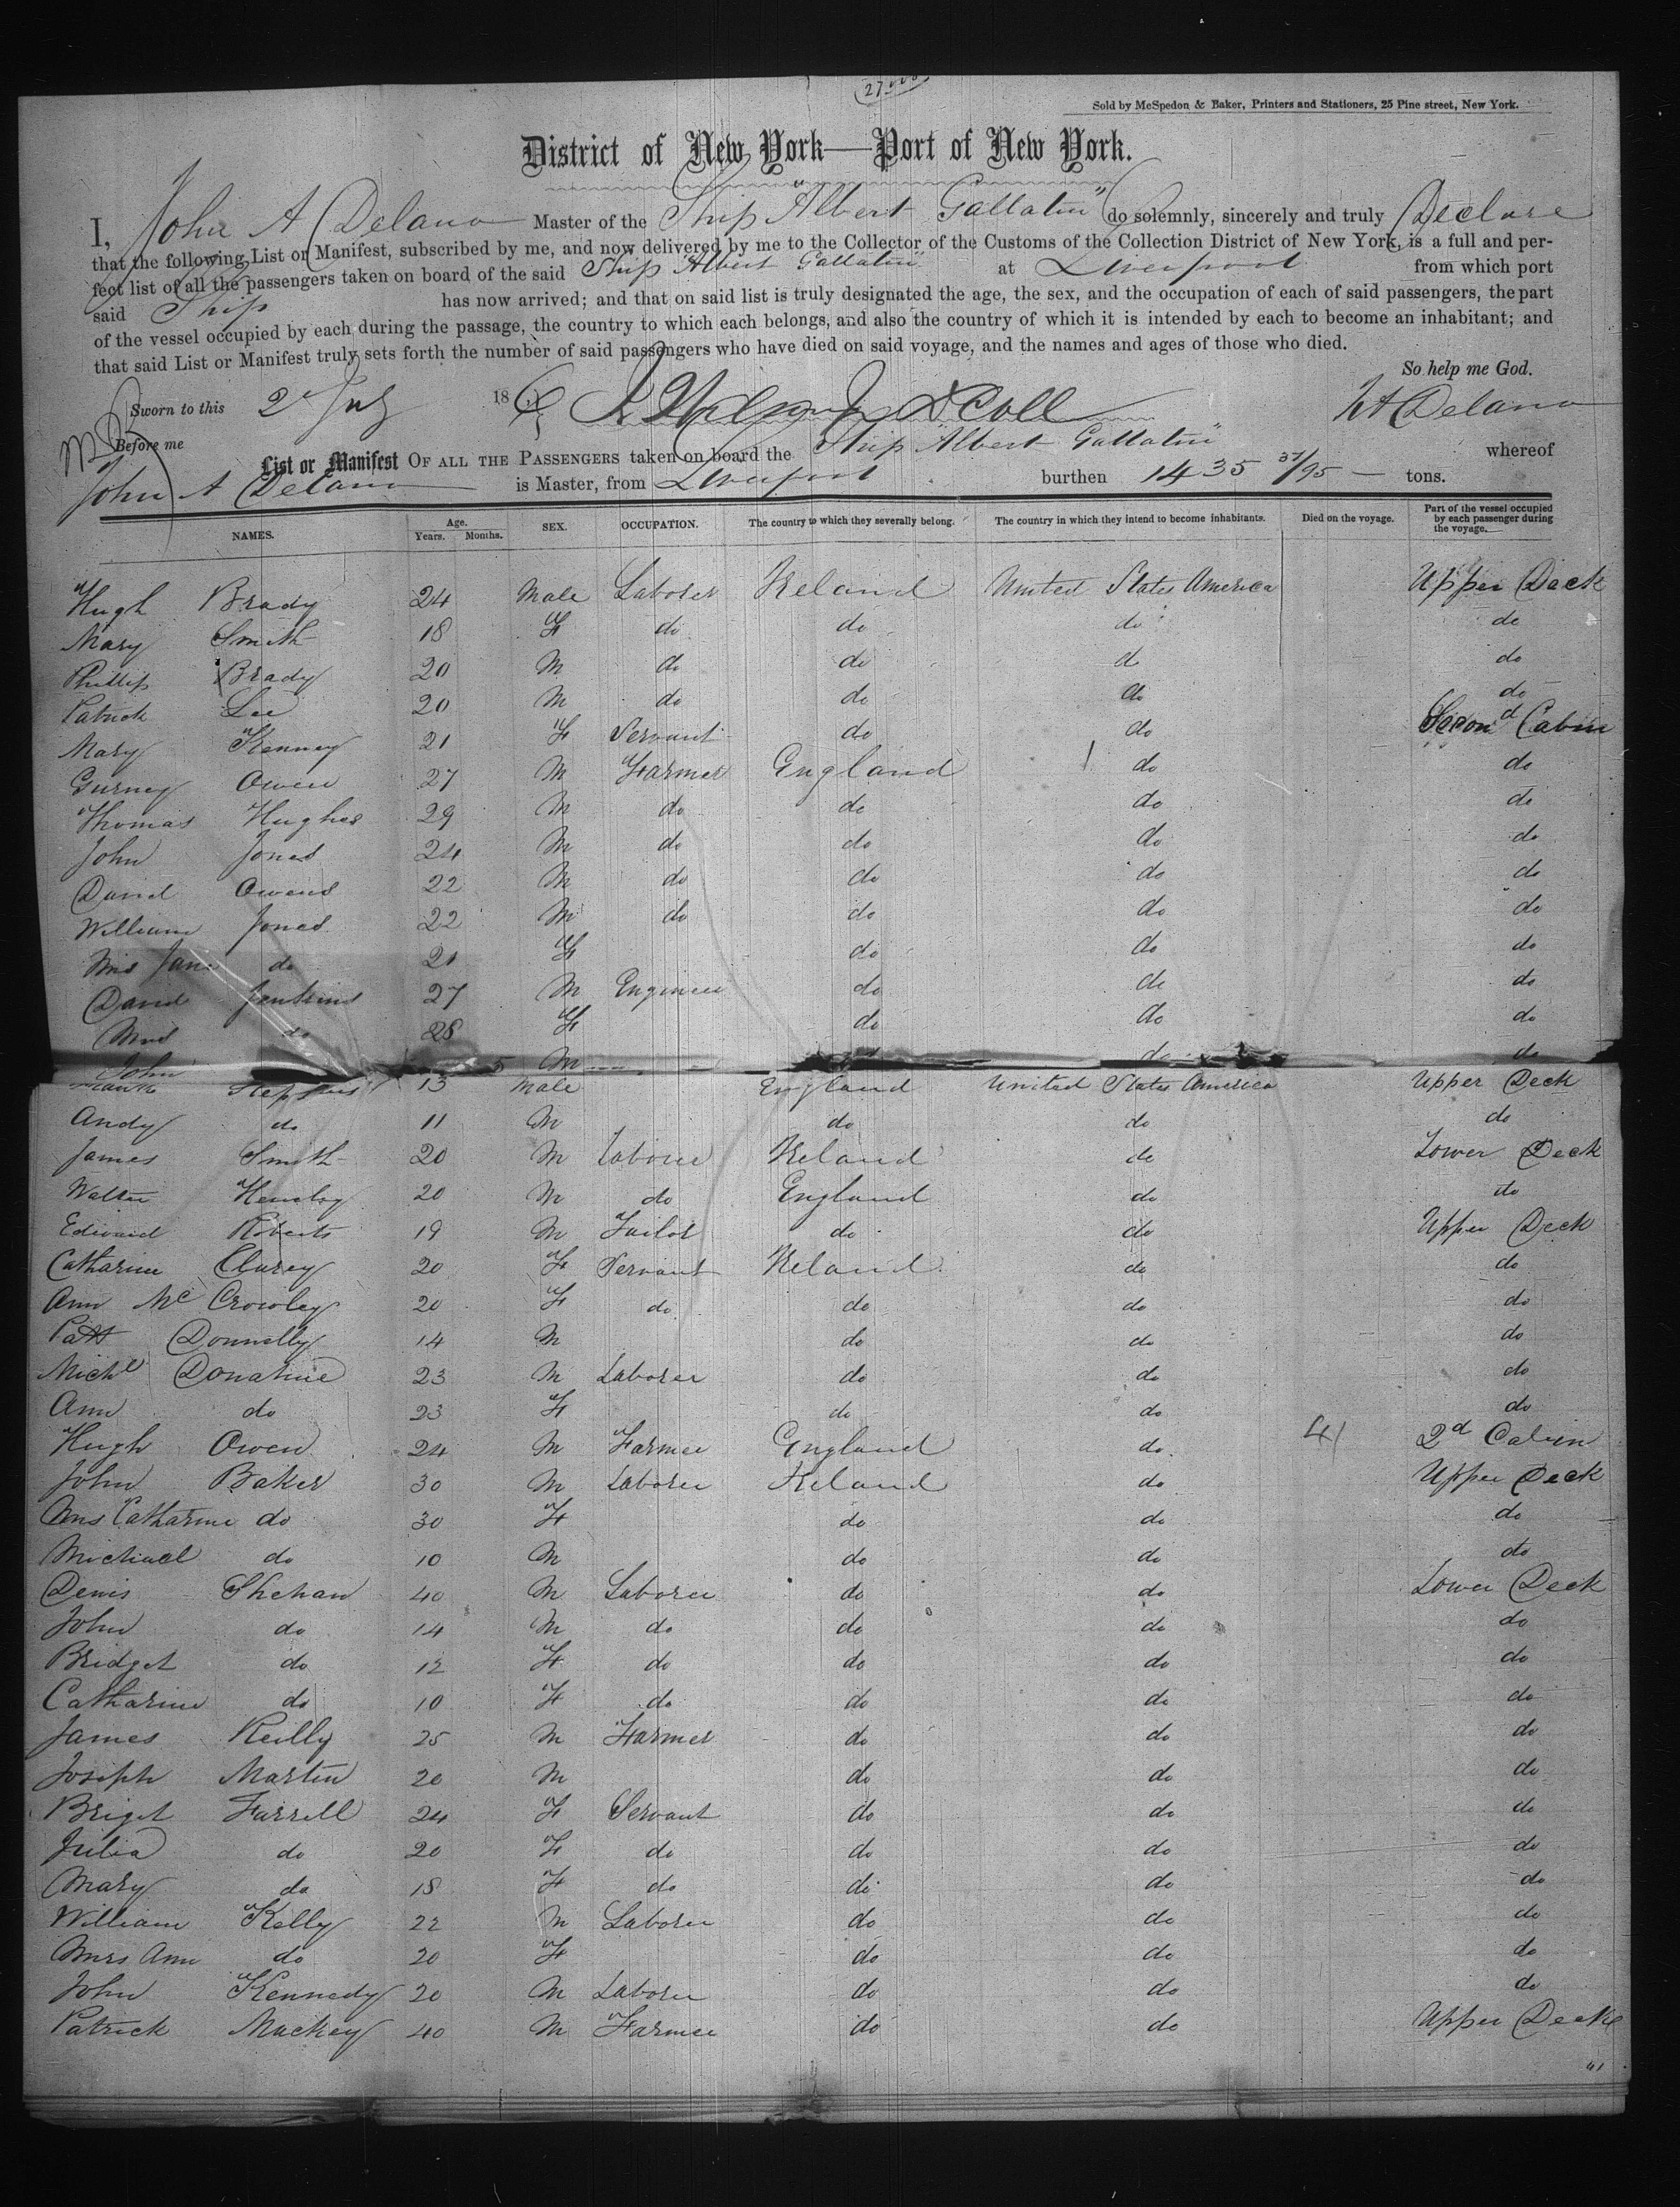 27.000
Sold by McSpedon & Baker, Printers and Stationers, 25 Pine street, New York.
District of New York—Port of New York.
I, John A Delano Master of the Ship "Albert Gallatin" do solemnly, sincerely and truly Declare
that the following List or Manifest, subscribed by me, and now delivered by me to the Collector of the Customs of the Collection District of New York, is a full and per-
fect list of all the passengers taken on board of the said Ship "Albert Gallatin" at Liverpool from which port
said Ship has now arrived; and that on said list is truly designated the age, the sex, and the occupation of each of said passengers, the part
of the vessel occupied by each during the passage, the country to which each belongs, and also the country of which it is intended by each to become an inhabitant; and
that said List or Manifest truly sets forth the number of said passengers who have died on said voyage, and the names and ages of those who died.
So help me God.
Sworn to this 2d July 186 D Coll Delano
Before me
List or Manifest OF ALL THE PASSENGERS taken on board the Ship "Albert Gallatin" whereof
John A Delano is Master, from Liverpool burthen 1435 37/95 tons.
NAMES. Age. Years. Months. SEX. OCCUPATION. The country to which they severally belong. The country in which they intend to become inhabitants. Died on the voyage. Part of the vessel occupied by each passenger during the voyage.
Hugh Brady 24 Male Laborer Ireland United States America Upper Deck
Mary Smith 18 F do do do do
Phillip Brady 20 M do do do do
Patrick Lee 20 M do do do do
Mary Kenney 21 F Servant do do Second Cabin
Gurney Owen 27 M Farmer England 1 do do
Thomas Hughes 29 M do do do do
John Jones 24 M do do do do
David Owens 22 M do do do do
William Jones 22 M do do do do
Mrs Jane do 21 F do do do
David Jenkins 27 M Engineer do do do
Mrs do 28 F do do do
John 5 M do do
Stephens 13 Male England United States America Upper Deck
Andy do 11 M do do do
James Smith 20 M Laborer Ireland do Lower Deck
Walter 20 M do England do do
Edward Roberts 19 M Tailor do do Upper Deck
Catharine Clurey 20 F Servant Ireland do do
Ann Mc Crowley 20 F do do do do
Patt Donnelly 14 M do do do
Michl Donahue 23 M Laborer do do do
Ann do 23 F do do do
Hugh Owen 24 M Farmer England do 4/ 2d Cabin
John Baker 30 M Laborer Ireland do Upper Deck
Mrs Catharine do 30 F do do do
Michael do 10 M do do do
Denis Shehan 40 M Laborer do do Lower Deck
John do 14 M do do do do
Bridget do 12 F do do do do
Catharine do 10 F do do do do
James Reilly 25 M Farmer do do do
Joseph Martin 20 M do do do
Briget Farrell 24 F Servant do do do
Julia do 20 F do do do do
Mary do 18 F do do do do
William Kelly 22 M Laborer do do do
Mrs Ann do 20 F do do do
John Kennedy 20 M Laborer do do do
Patrick Mackey 40 M Farmer do do Upper Deck
41